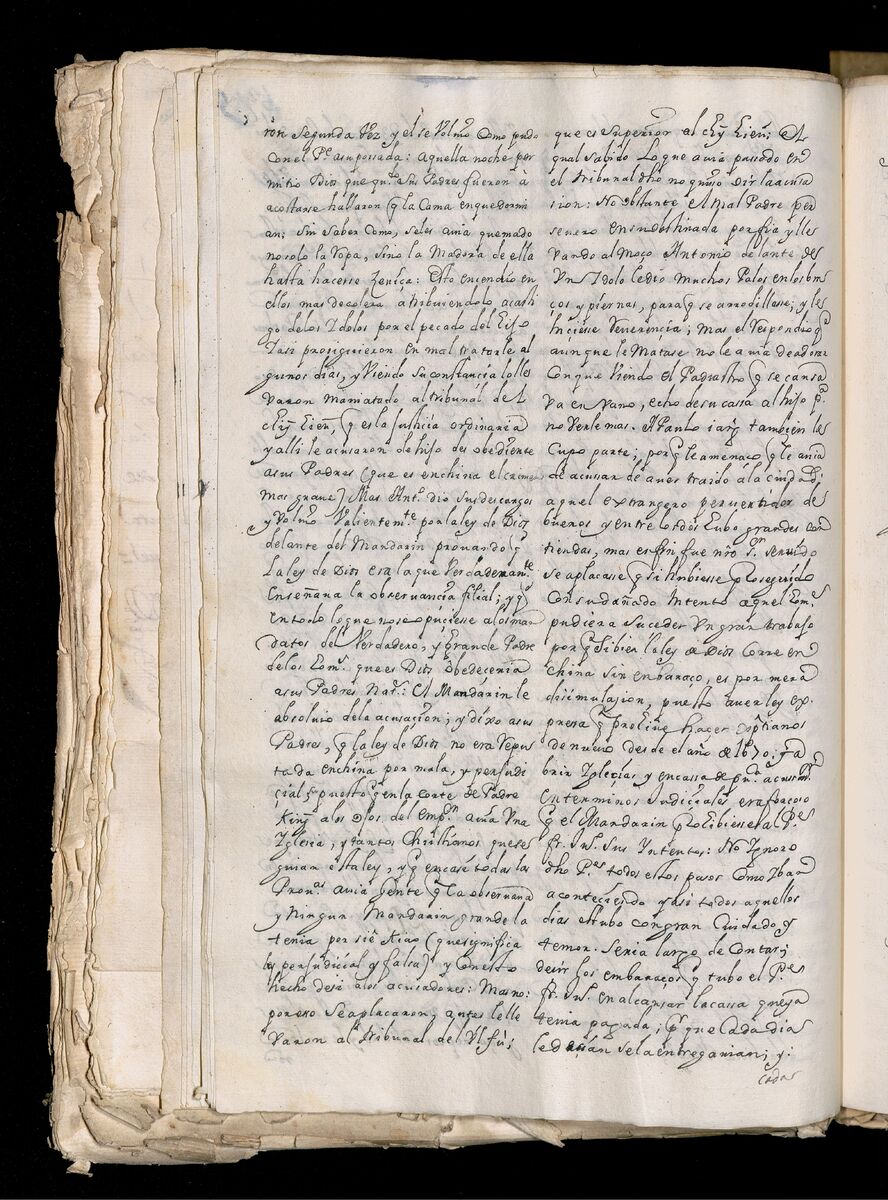 ron segunda vez y el se volvio como pudo
con el Pe a su possada: aquella noche per
mitio Dios que qndo sus Padres fueron à
acostarse hallaron q la Cama en que dormi
an; sin saber como, seles avia quemado
no solo la ropa, sino la Madera de ella
hasta hacerse Zeniça: Esto encendio en
ellos mas de colera atribuiendolo a casti
go delos Idolos por el pecado del hijo
Iasi prosiguieron en mal tratarle al
gunos dias, y viendo su constancia lo lle
varon maniatado al tribunal de l
chy hien, (q es la Justicia ordinaria
y alli le acusaron de hijo des obediente
a sus Padres (que es en china el crimen
mas grave) Mas Anto. dio sus descargos
y volvio valientemte por la ley de Dios
delante del Mandarin provando q
La ley de Dios era la que verdaderamte
enseñana la observancia filial; y q
en todo lo que no se opuciese a los man
datos del Verdadero, y grande Padre
de los homs. que es Dios obedeceria
a sus Padres Nas.: El Mandarin le
absolvio dela acusacion; y dixo a sus
Padres, q la ley de Dios no era repu
tada en china por mala, y perjudi
cial, puesto q en la corte de Padre
King a los ojos del Empr. avia Una
Iglesia, y tantos Christianos que se
guian esta ley, y q en casi todas las
Provas. avia gente q la observava
y Ningun Mandarin grande la
tenia por siê Kiao (que significa
ley perjudicial y falsa) y con esto
hecho desi a los acusadores: Mas no
por eso se aplacaron, antes le lle
varon al tribunal del Ulfú;
que es superior al chy hien; el
qual sabido lo que avia passado en
el tribunal dho no quiso oir la acusa
sion: No obstante el mal Padre per
severo en su obstinada porfia y lle
vando al moço Antonio delante de
Un Idolo le dio muchos Palos en los bra
cos y piernas, para q se arrodillasse; y les
hiciese Reverencia; mas el respondio q
aunque le Matase no le avia de adorar
Con que viendo el Padrastro q se cansa
va en vano, echo de su cassa al hijo pa
no verle mas. A Paulo iang tambien le
Cupo parte; por q le amenaço q le avia
de acusar de aver traido à la ciudad
aquel extrangero pervertidor de
buenos y entre los dos hubo grandes con
tiendas, mas en fin fue nro Sr. servido
se aplacase q si hubiesse Proseguido
Con su dañado Intento aquel homb
pudiera suceder Un gran trabajo
por q si bien la ley de Dios corre en
China sin embaraço, es por mera
disimulasion, puesto aver ley ex-
presa q prohive hacer christianos
de nuevo desde el año de 1670. y a
brir Iglecias y en cassa de
en terminos Judiciales era forcoso
q el Mandarin Prohibiesse al Pe
fr. Jn. sus Yntentos: No Ignoro
dho Pe. todos estos pasos como iban
aconteciendo y asi todos aquellos
dias estubo con gran Cuidado, y
temor. Seria largo de Contar;
decir los embaraços q tubo el Pe
fr. Jn. en alcansar la cassa que ya
tenia pagada; porque cada dia
le decian se la entregarian; y:
cadas